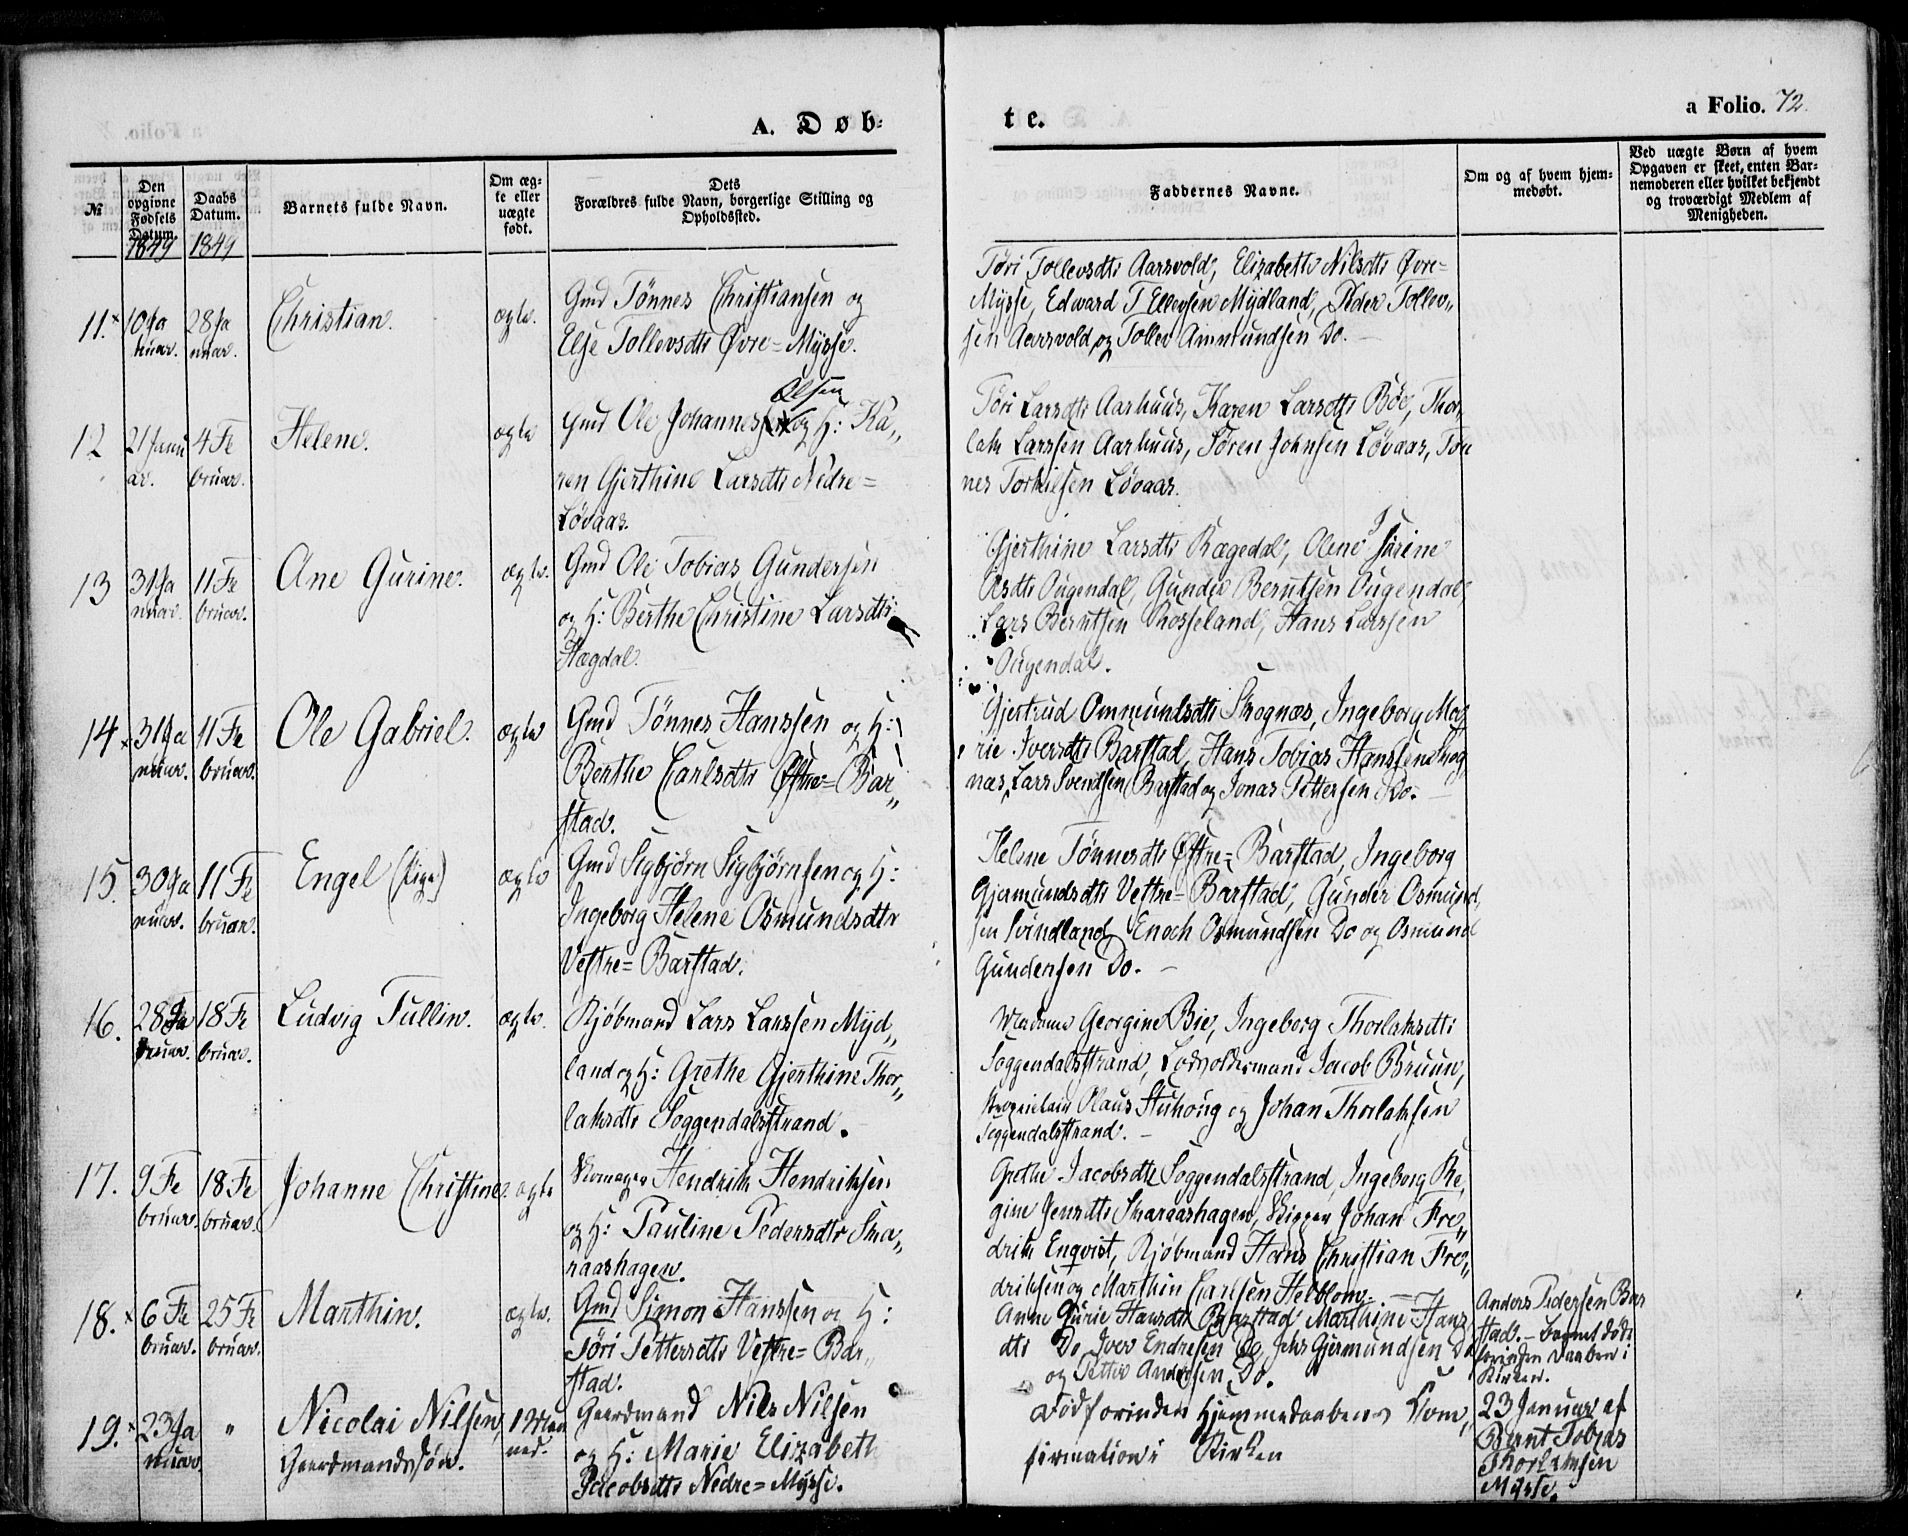 A. Døb-
te.
a Folio. 72.
№
Den opgivne Fødsels Datum.
Daabs Datum.
Barnets fulde Navn.
Om ægte eller uægte født.
Dets Forældres fulde Navn, borgerlige Stilling og Opholdssted.
Faddernes Navne.
Om og af hvem hjemmedøbt.
Ved uægte Børn af hvem Opgaven er skeet, enten Barnemoderen eller hvilket bekjendt og troværdigt Medlem af Menigheden.
1849 1849
11. × 10 Ja
nuar.
28 Ja
nuar.
Christian.
ægte.
Gmd Tønnes Christiansen og
Else Tollevsdtr Øvre=Mysse.
Tøri Tollevsdtr Aarsvold, Elizabeth Nilsdtr Øvre=
Mysse, Edward T Ellevsen Mydland, Peder Tollev„
sen Aarsvold og Tollev Ammundsen Do.
12
21 Janu
ar.
4 Fe
bruar.
Helene.
ægte
Olsen
Gmd Ole Johannes og H: Ka„
ren Gjerthine Larsdtr Nedre=
Løvaas.
Tøri Larsdtr Aarhuus, Karen Larsdtr Bøe, Thor
lak Larssen Aarhuus, Søren Johnsen Løvaas, Tøn
nes Torkilsen Løvaas.
13
31 Ja
nuar.
11 Fe
bruar.
Ane Gurine.
ægte.
Gmd Ole Tobias Gundersen
og H: Berthe Christine Larsdtr
Hægdal.
Gjerthine Larsdtr Rægedal, Olene
Olsdtr Ougendal, Gunder Berntsen Ougendal,
Lars Berntsen Rosseland, Hans Larssen
Ougendal.
14 ×
31 Ja
nuar.
11 Fe
bruar.
Ole Gabriel.
ægte
Gmd Tønnes Hanssen og H:
Berthe Carlsdtr Østre=Bar„
stad.
Gjertrud Ommundsdtr Skognæs, Ingeborg Ma
rie Iversdtr Barstad, Hans Tobias Hanssen Skog
næs, Lars Svendsen Barstad og Jonas Pettersen Do.
15.
30 Ja
nuar.
11 Fe
bruar.
Engel (Pige)
ægte
Gmd Sigbjørn Sigbjørnsen og H:
Ingeborg Helene Osmundsdtr
Vestre=Barstad.
Helene Tønnesdtr Østre=Barstad, Ingeborg
Gjermundsdtr Vestre=Barstad, Gunder Osmund,
sen Svindland, Enoch Osmundsen Do og Osmund
Gundersen Do.
16.
28 Ja
nuar.
18 Fe
bruar.
Ludvig Tullin.
ægte.
Kjøbmand Lars Larssen Myd„
land og H: Grethe Gjerthine Thor„
laksdtr Soggendalsstrand.
Madame Georgine Bie, Ingeborg Thorlaksdtr
Soggendalsstrand, Lodsoldermand Jacob Bruun,
Olaus Stuhoug og Johan Thorlaksen
Soggendalsstrand.
17.
9 Fe
bruar.
18 Fe
bruar.
Johanne Christine.
ægte
Skomager Hendrik Hendriksen
og H: Pauline Pedersdtr Ska„
raashagen.
Grethe Jacobsdtr Soggendalsstrand, Ingeborg Re,
gine Jensdtr Skaraashagen, Skipper Johan Fre„
drik Enqvist, Kjøbmand Hans Christian Fre„
driksen og Marthin Carlsen Hebloom.
18. ×
6 Fe
bruar.
25 Fe
bruar.
Marthin.
ægte.
Gmd Simon Hanssen og H:
Tøri Pettersdtr Vestre=Bar„
stad.
Anne Gurie Hansdtr Barstad Marthine Hans
dtr Do Iver Endresen Do, Gjermundsen Do
og Petter Andersen Do.
Anders Pedersen Bar
stad. – Barnet døde
forinden Daaben i
Kirken.
19. ×
23 Ja
nuar.
"
Nicolai Nilsen,
Gaardmandssøn.
1 Maa
ned.
Gaardmand Nils Nilsen
og H: Marie Elizabeth
Jacobsdtr Nedre=Mysse.
Død forinden Hjemmedaabens Kon„
firmation i Kirken
23 Januar af
Bernt Tobias
Thorlaksen
Mysse.